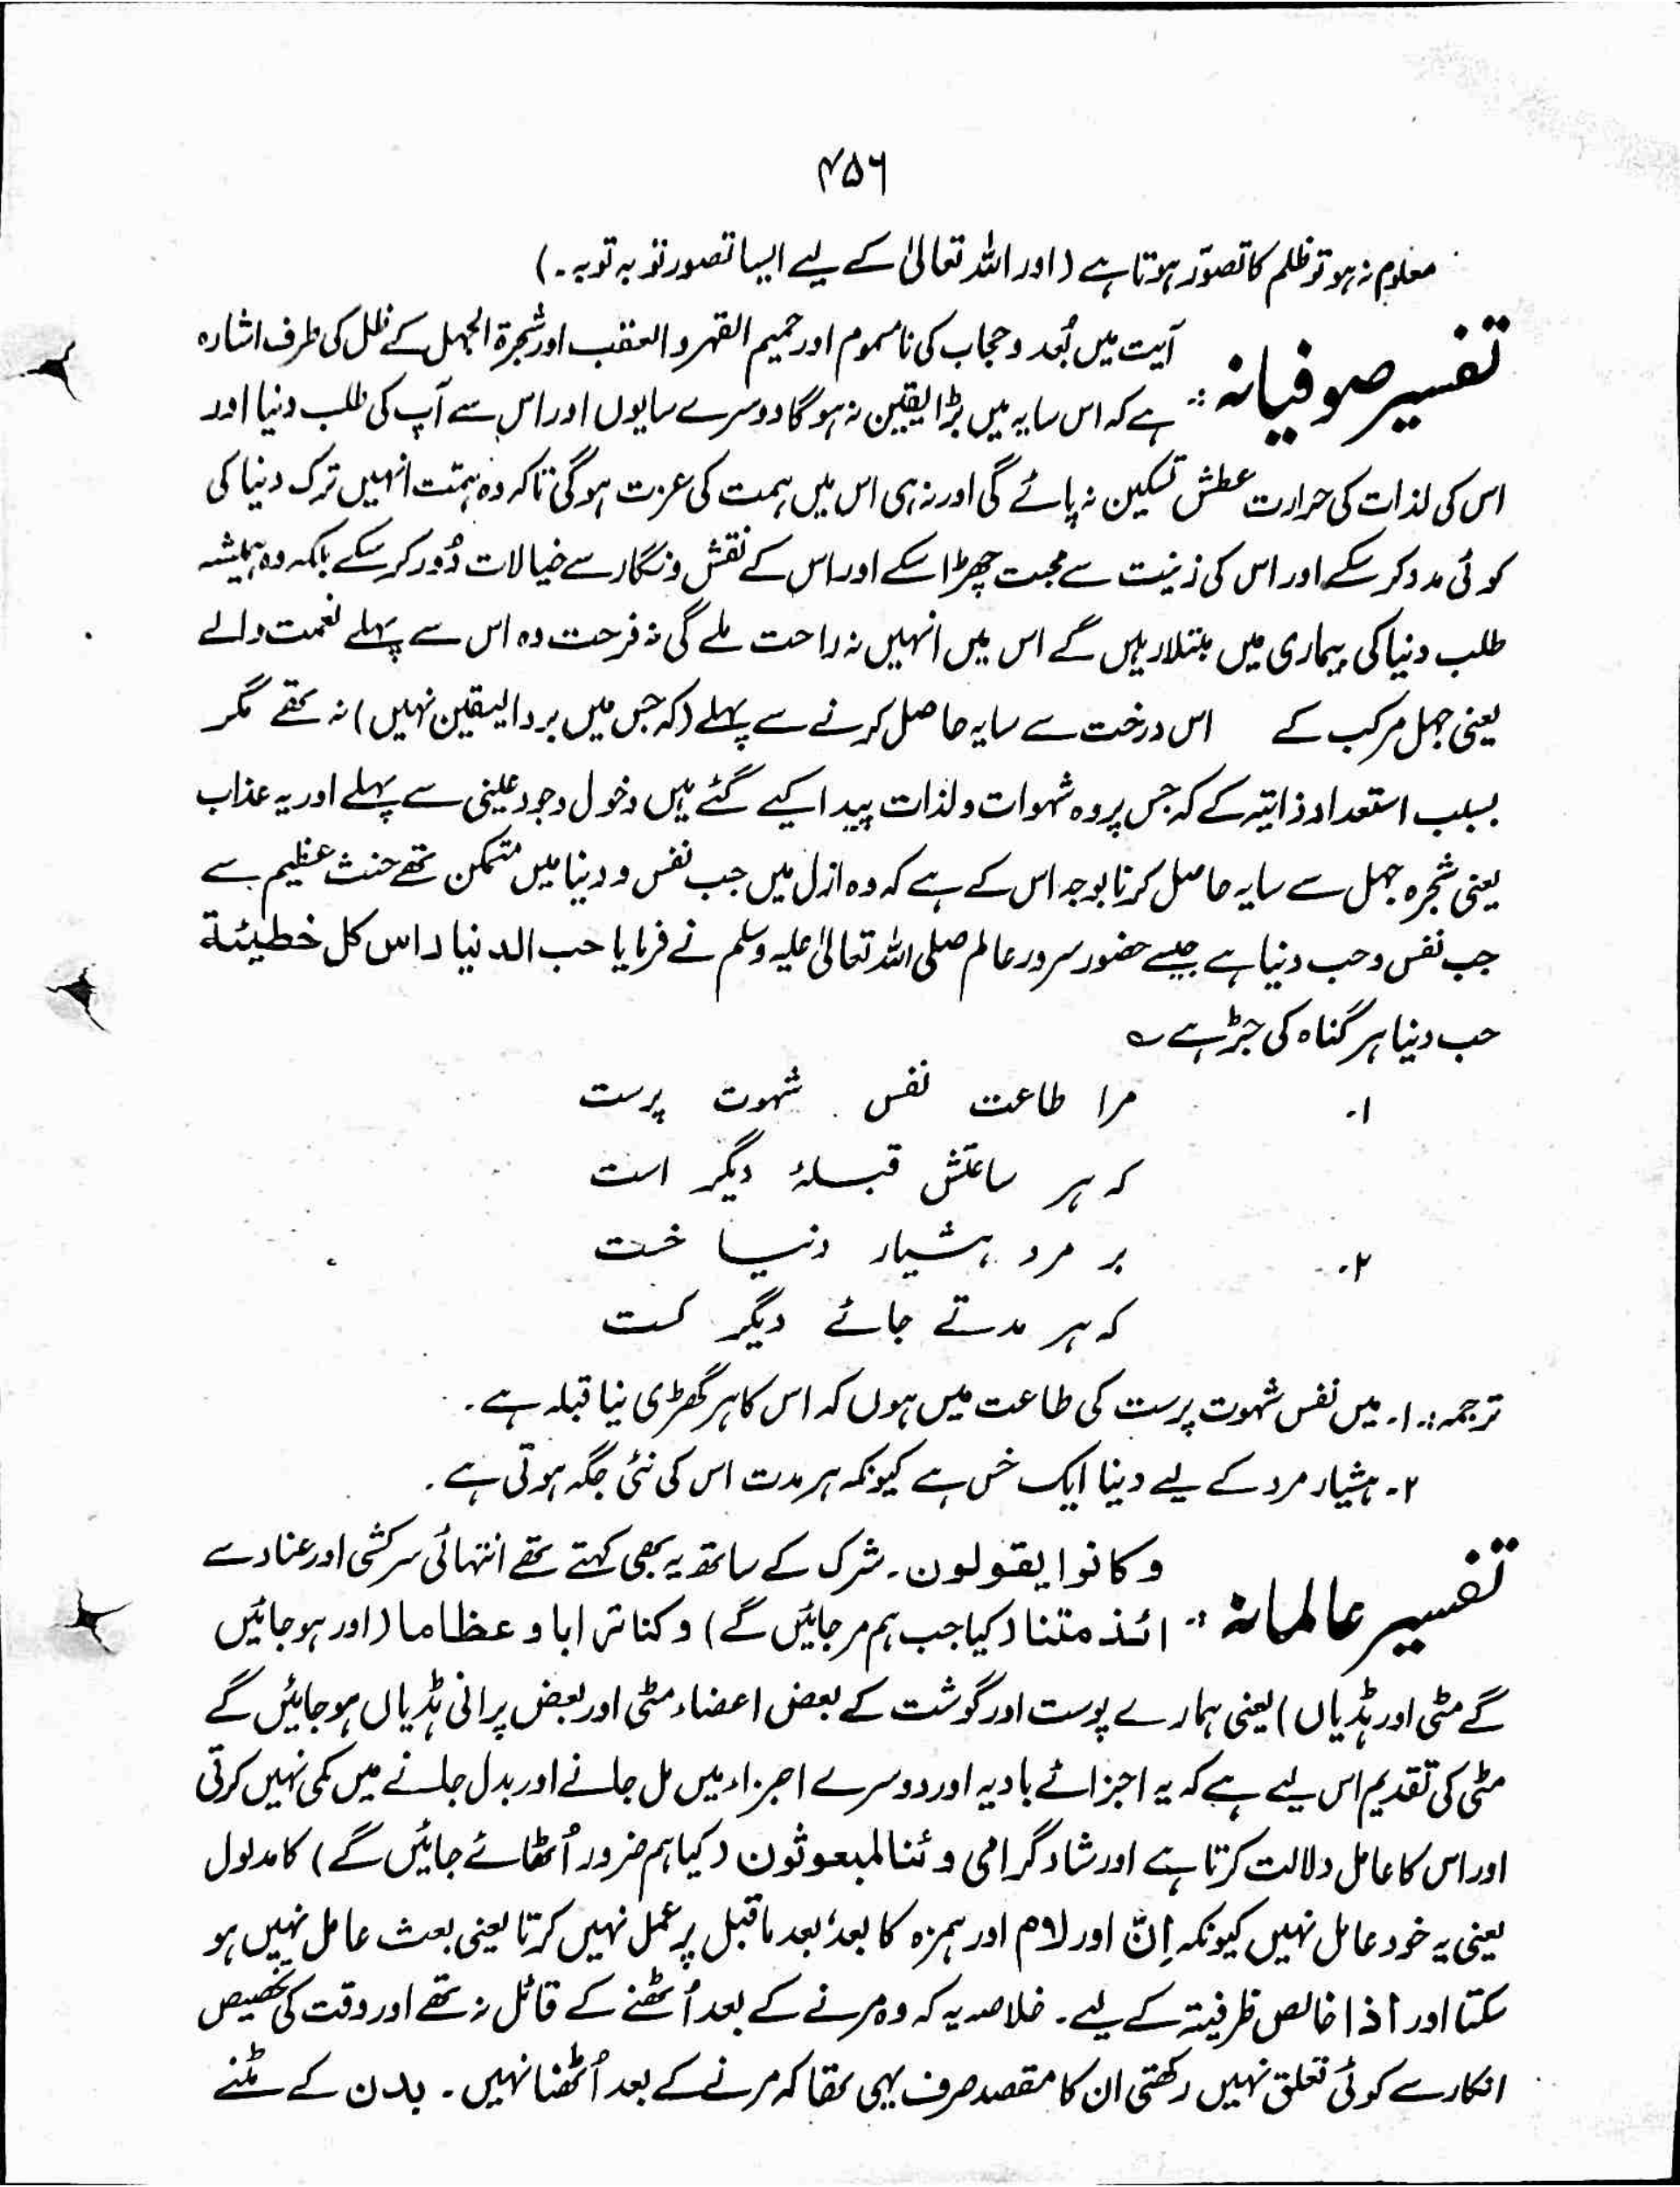 ۴۵۶
معلوم نہ ہو تو ظلم کا تصوّر ہوتا ہے (اور اللہ تعالیٰ کے لیے ایسا تصور توبہ توبہ۔)
تفسیر صوفیانہ :۔ آیت میں بُعد و حجاب کی نا سموم اور حمیم القہر و الغضب اور شجرۃ الجہل کے ظل کی طرف اشارہ
ہے کہ اس سایہ میں بڑا یقین نہ ہوگا دوسرے سایوں اور اس سے آپ کی طلب دنیا اور
اس کی لذات کی حرارت عطش تسکین نہ پائے گی اور نہ ہی اس میں ہمت کی عزت ہوگی تاکہ وہ ہمّت انہیں ترک دنیا کی
کوئی مدد کر سکے اور اس کی زینت سے محبت چھڑا سکے اور اس کے نقش و نگار سے خیالات دُور کر سکے بلکہ وہ ہمیشہ
طلب دنیا کی بیماری میں مبتلا رہیں گے اس میں انہیں نہ راحت ملے گی نہ فرحت وہ اس سے پہلے نعمت والے
یعنی جہل مرکب کے اس درخت سے سایہ حاصل کرنے سے پہلے (کہ جس میں برد الیقین نہیں) نہ تھے مگر
بسبب استعداد ذاتیہ کے کہ جس پر وہ شہوات و لذات پیدا کیے گئے ہیں دخول وجود عینی سے پہلے اور یہ عذاب
یعنی شجرہ جہل سے سایہ حاصل کرنا بوجہ اس کے ہے کہ وہ ازل میں جب نفس و دنیا میں متمکن تھے حنث عظیم ہے
جب نفس و حب دنیا ہے جیسے حضور سرور عالم صلی اللہ تعالیٰ علیہ وسلم نے فرمایا حب الدنیا راس کل خطیئة
حب دنیا ہر گناہ کی جڑ ہے ؎
۱۔ مرا طاعت نفس شہوت پرست
کہ ہر ساعتش قبلۂ دیگر است
۲۔ بر مرد ہشیار دنیا خست
کہ ہر مدتے جائے دیگر کست
ترجمہ :۔ ۱۔ میں نفس شہوت پرست کی طاعت میں ہوں کہ اس کا ہر گھڑی نیا قبلہ ہے۔
۲۔ ہشیار مرد کے لیے دنیا ایک خس ہے کیونکہ ہر مدت اس کی نئی جگہ ہوتی ہے۔
تفسیر عالمانہ :۔ وکانوا یقولون۔ شرک کے ساتھ یہ بھی کہتے تھے انتہائی سرکشی اور عناد سے
ائذ متنا (کیا جب ہم مر جائیں گے) وکنا ترابا و عظاما (اور ہو جائیں
گے مٹی اور ہڈیاں) یعنی ہمارے پوست اور گوشت کے بعض اعضاء مٹی اور بعض پرانی ہڈیاں ہو جائیں گے
مٹی کی تقدیم اس لیے ہے کہ یہ اجزائے بادیہ اور دوسرے اجزاء میں مل جانے اور بدل جانے میں کمی نہیں کرتی
اور اس کا عامل دلالت کرتا ہے اور شاد گرامی وئنا لمبعوثون (کیا ہم ضرور اُٹھائے جائیں گے) کا مدلول
یعنی یہ خود عامل نہیں کیونکہ اِنَّ اور لام اور ہمزہ کا بعد، بعد ماقبل پر عمل نہیں کرتا یعنی بعث عامل نہیں ہو
سکتا اور اذا خالص ظرفیتہ کے لیے۔ خلاصہ یہ کہ وہ مرنے کے بعد اُٹھنے کے قائل نہ تھے اور وقت کی تخصیص
انکار سے کوئی تعلق نہیں رکھتی ان کا مقصد صرف یہی تھا کہ مرنے کے بعد اُٹھنا نہیں۔ بدن کے مٹنے